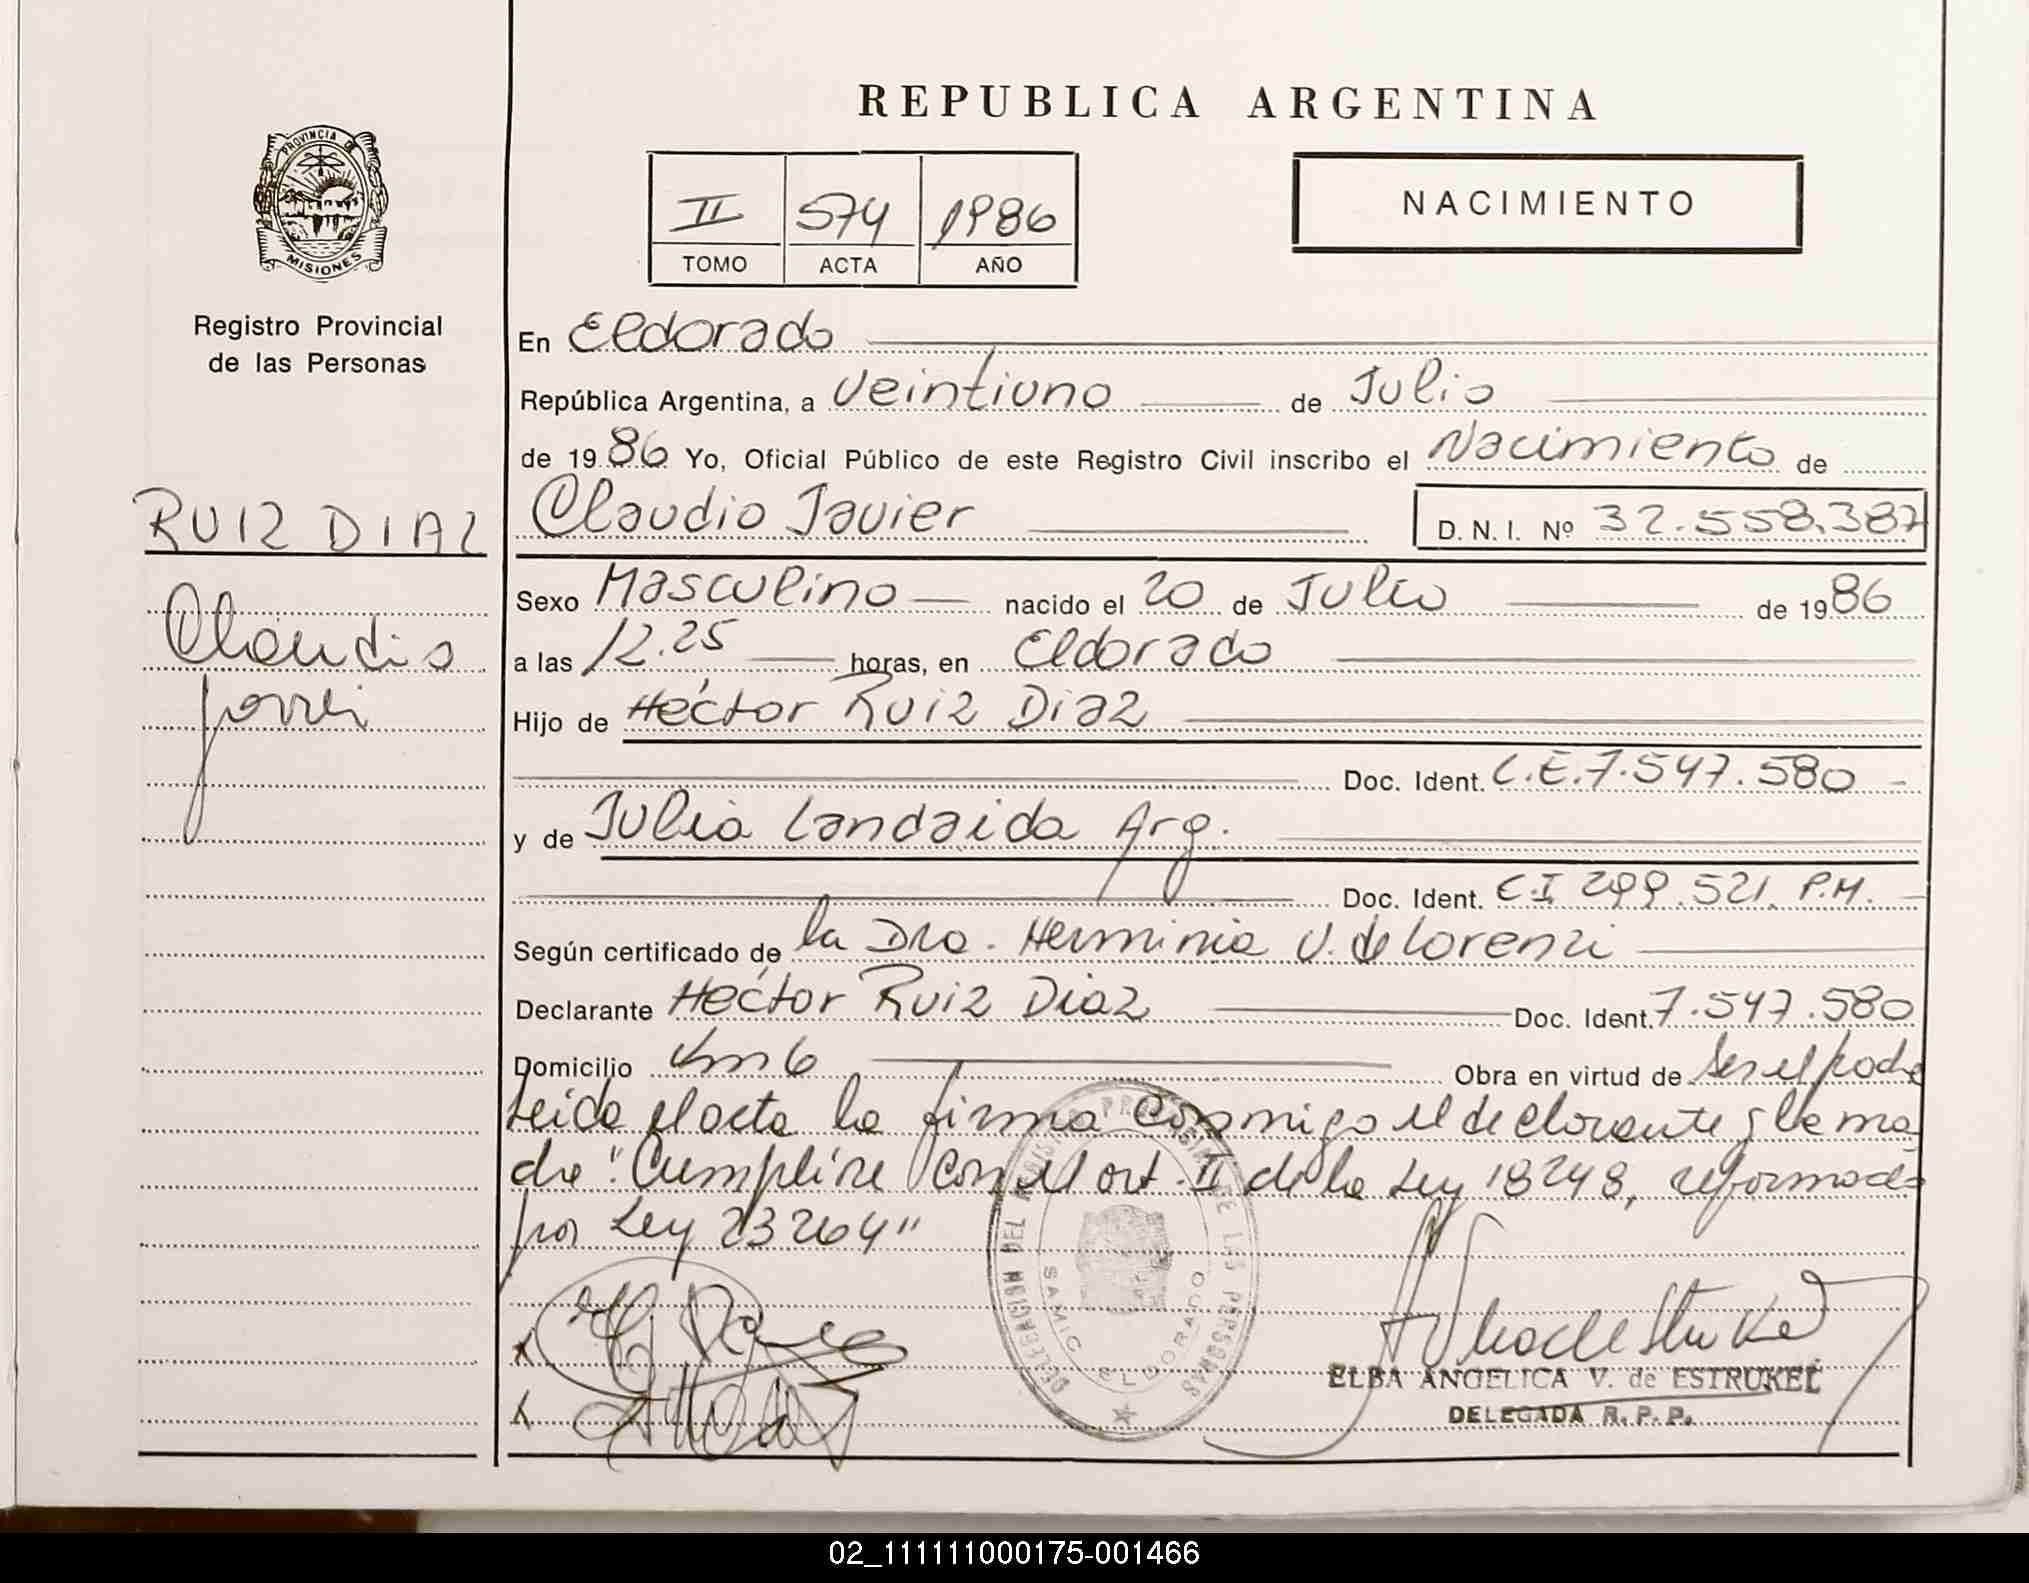 REPUBLICA ARGENTINA
PROVINCIA DE
MISIONES
Registro Provincial
de las Personas
II 574 1986
TOMO ACTA AÑO
NACIMIENTO
En Eldorado
República Argentina, a veintiuno de Julio
de 1986 Yo, Oficial Público de este Registro Civil inscribo el Nacimiento de
Claudio Javier D. N. I. Nº 32.558.387
RUIZ DIAZ
Claudio
Javier
Sexo Masculino nacido el 20 de Julio de 1986
a las 12.25 horas, en Eldorado
Hijo de Héctor Ruiz Diaz
Doc. Ident. C.E. 7.547.580
y de Julia Landaida Arg.
Doc. Ident. C.I 299.521. P.M.
Según certificado de la Dra. Herminia V. de Lorenzi
Declarante Héctor Ruiz Diaz Doc. Ident. 7.547.580
Domicilio Km 6 Obra en virtud de ser el padre
Leida el acta la firma conmigo el declarante y la ma
dre "Cumplire con el art. II de la Ley 18248, reformada
por Ley 23264"
DELEGACION DEL REGISTRO PROVINCIAL DE LAS PERSONAS
SAMIC ELDORADO
ELBA ANGELICA V. de ESTRUKEL
DELEGADA R. P. P.
02_111111000175-001466